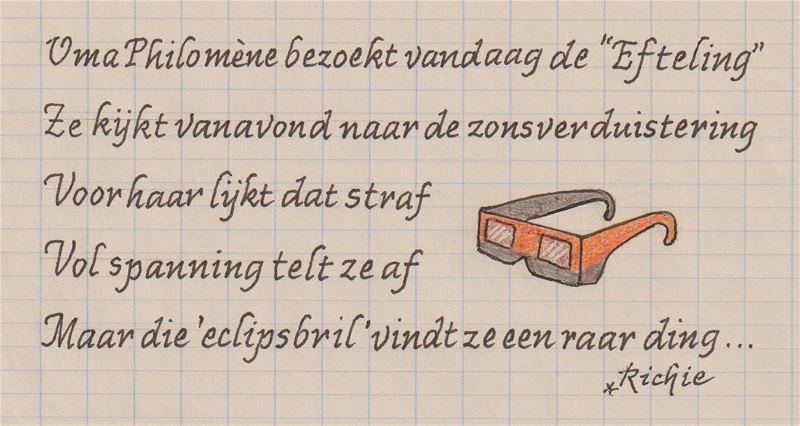 Oma Philomène bezoekt vandaag de "Efteling"
Ze kijkt vanavond naar de zonsverduistering
Voor haar lijkt dat straf
Vol spanning telt ze af
Maar die 'eclipsbril' vindt ze een raar ding...
*Richie